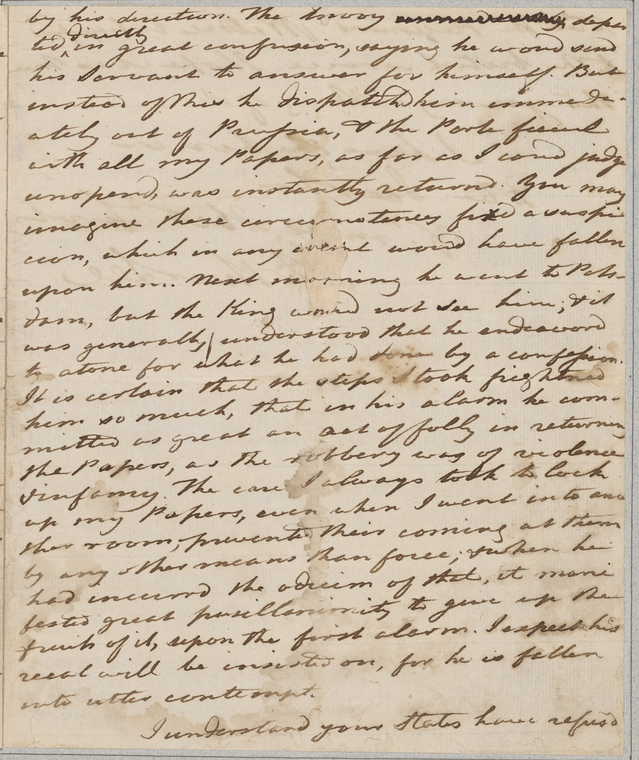 by his direction. The Envoy depar
ted directly in great confusion, saying he woud send
his Servant to answer for himself. But
instead of this he dispatchd him immedi-
ately out of Prussia, & the Porte fieuel
with all my Papers, as far as I coud judge
unopend, was instantly returnd. You may
imagine these circumstances fixd a suspi
cion, which in any event woud have fallen
upon him. Next morning he went to Pots-
dam, but the King woud not see him; & it
was generally understood that he endeavord
to atone for what he had done by a confession.
It is certain that the steps I took frightend
him so much, that in his alarm he com-
mitted as great an act of folly in returning
the Papers, as the robbery was of violence
& infamy. The care I always took to lock
up my Papers, even when I went into ano
ther room, prevented their coming at them
by any other means than force; & when he
had incurrd the odium of that, it mani
fested great pusillanimity to give up the
fruits of it, upon the first alarm. I expect his
recal will be insisted on, for he is fallen
into utter contempt.
I understand your States have refusd